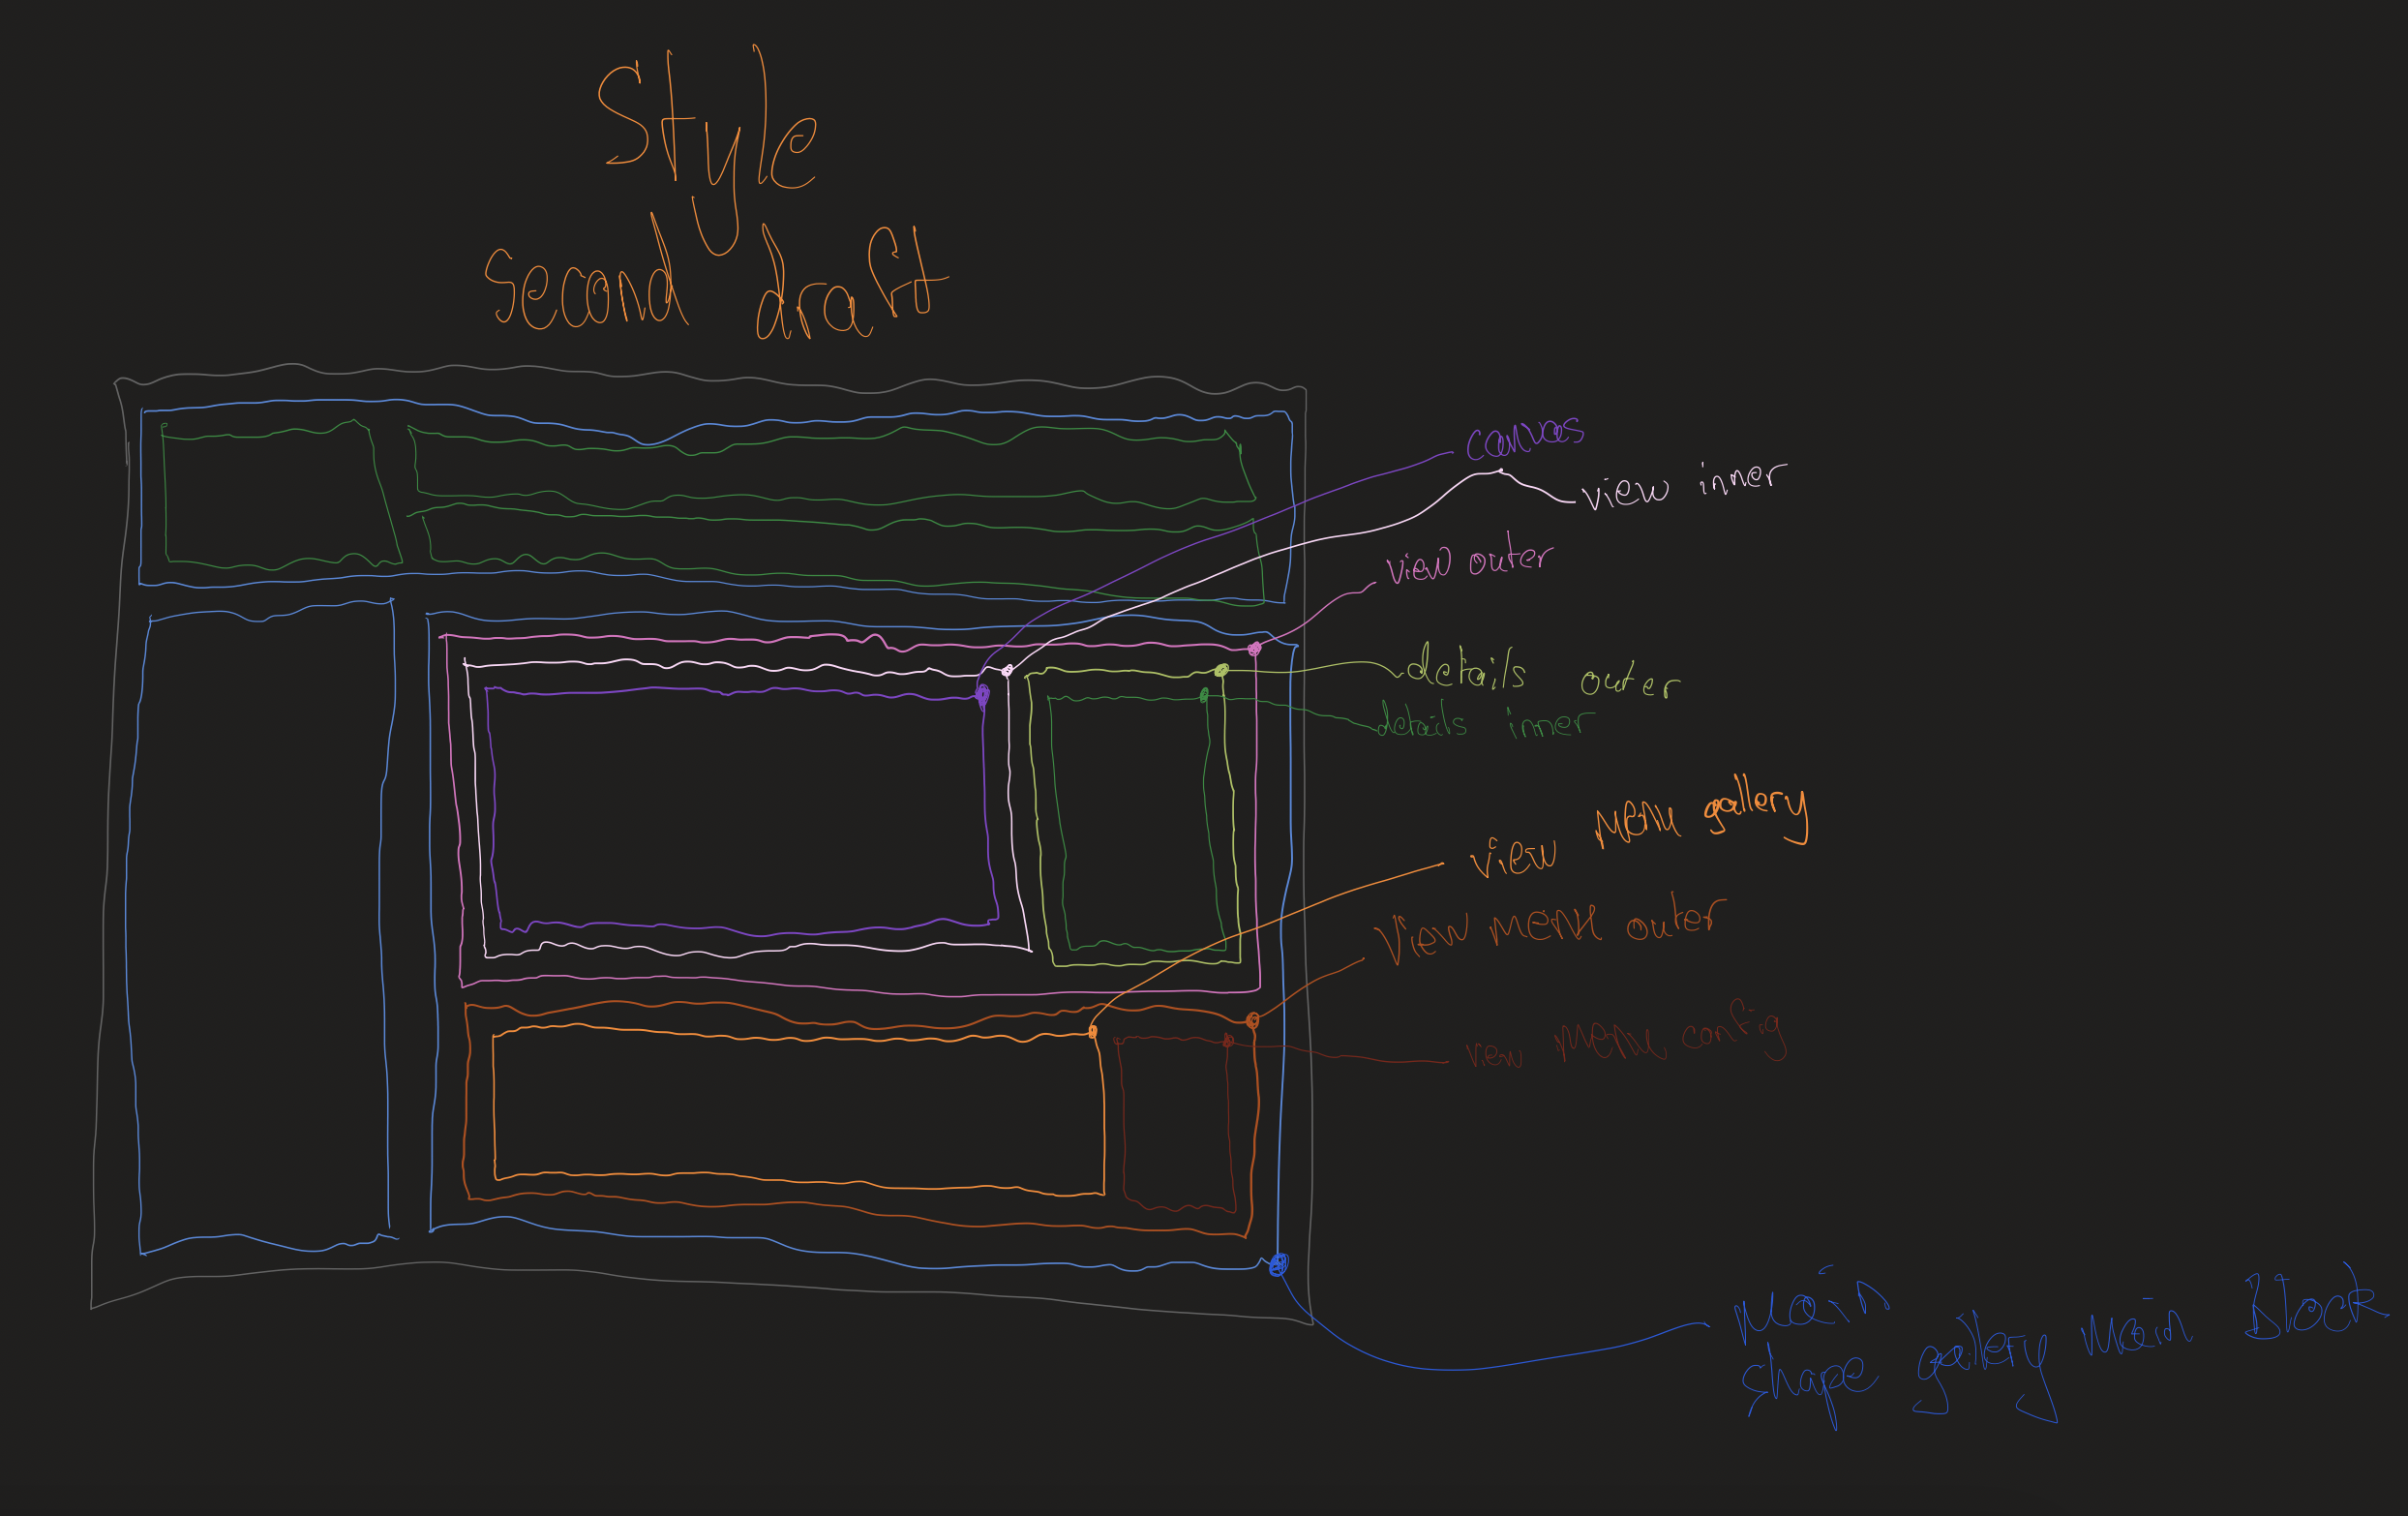 Style
second draft
canvas
view inner
view outer
details outer
details inner
view menu gallery
view menu outer
view menu config
Main
shape gallery main block